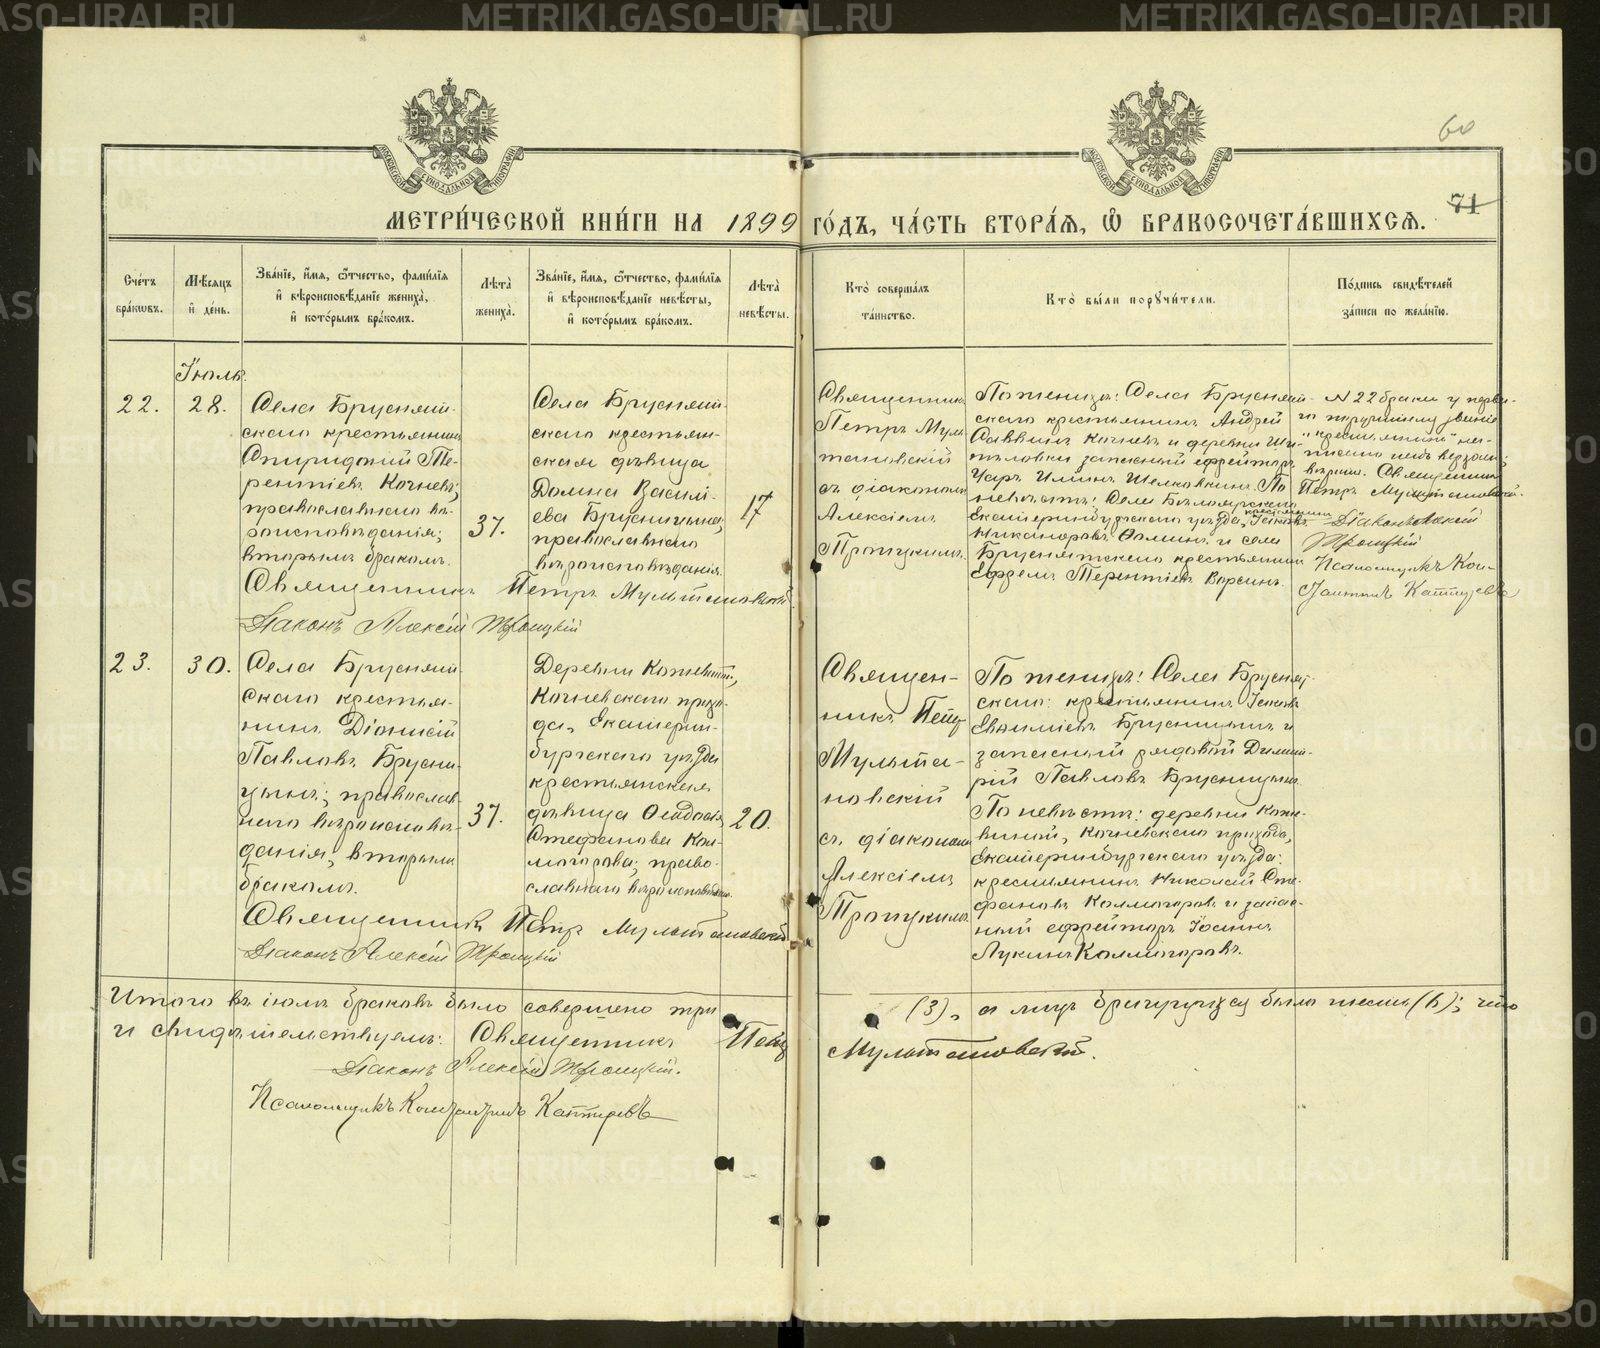 60
71
МЕТРИ́ЧЕСКОЙ КНИ́ГИ НА 1899 ГО́ДЪ, ЧА́СТЬ ВТОРА́Я, Ѡ БРАКОСОЧЕТА́ВШИХСЯ.
Сче́тъ бра́кѡвъ.
Мѣ́сяцъ и де́нь.
Зва́нїе, и́мя, ѻ́тчество, фами́лїя и вѣроисповѣ́данїе жениха̀, и кото́рымъ бра́комъ.
Лѣ́та жениха̀.
Зва́нїе, и́мя, ѻ́тчество, фами́лїя и вѣроисповѣ́данїе невѣ́сты, и кото́рымъ бра́комъ.
Лѣ́та невѣ́сты.
Кто̀ соверша́лъ та́инство.
Кто̀ бы́ли порꙋчи́тели.
По́дпись свидѣ́телей за́писи по жела́нїю.
Іюль.
22.
28.
Села Бруснят-
скаго крестьянинъ
Спиридоній Те-
рентіевъ Кочневъ,
православнаго вѣ-
роисповѣданія;
вторымъ бракомъ.
37.
Села Бруснят-
скаго крестьян-
ская дѣвица
Домна Васи́лі-
ева Брусницына,
православнаго
вѣроисповѣданія.
17
Священникъ
Петръ Муль
тановскій
съ діакономъ
Алексіемъ
Троицкимъ.
По женихѣ: Села Бруснят-
скаго крестьянинъ Андрей
Саввинъ Кочневъ и деревни
запасный ефрейторъ
Илiинъ Шелковкинъ. По
невѣстѣ: Села Бѣлоярскаго
Екатеринбургскаго уѣзда, крестьянинъ Іаковъ
Никаноровъ Ѳоминъ и села
Бруснятскаго крестьянинъ
Ефремъ Терентіевъ
№ 22 брака у перва-
го поручителю званіе
"крестьянинъ" на-
писано
вѣрно. Священникъ
Петръ Мультановскій.
Діаконъ Алексій
Троицкій
Псаломщикъ Кон-
стантинъ Каптеревъ
Священникъ Петръ Мультановскій
Діаконъ Алексій Троицкій
23.
30.
Села Бруснят-
скаго крестья-
нинъ Діонисій
Павловъ Брусни-
цынъ; православ-
наго вѣроисповѣ-
данія, вторымъ
бракомъ.
37.
Деревни
Кочневскаго прихо-
да, Екатерин-
бургскаго уѣзда
крестьянская
дѣвица Ѳеодосія
Стефанова Кол-
могорова; право-
славнаго вѣроисповѣданія.
20.
Священ-
никъ Петръ
Мульта-
новскій
съ діакономъ
Алексіемъ
Троицкимъ
По женихѣ: Села Бруснят-
скаго: крестьянинъ Іаковъ
Евѳиміевъ Брусницынъ и
запасный рядовой Димит-
рій Павловъ Брусницынъ.
По невѣстѣ: деревни
Кочневскаго прихода,
Екатеринбургскаго уѣзда:
крестьянинъ Николай Сте-
фановъ Колмогоровъ и запас-
ный ефрейторъ Іоаннъ
Лукинъ Колмогоровъ.
Священникъ Петръ Мультановскій
Діаконъ Алексій Троицкій
Итого въ іюлѣ браковъ было совершено три (3), а лицъ брачущихся было шесть (6); что
и свидѣтельствуемъ: Священникъ Петръ Мультановскій.
Діаконъ Алексій Троицкій.
Псаломщикъ Константинъ Каптеревъ
METRIKI.GASO-URAL.RU